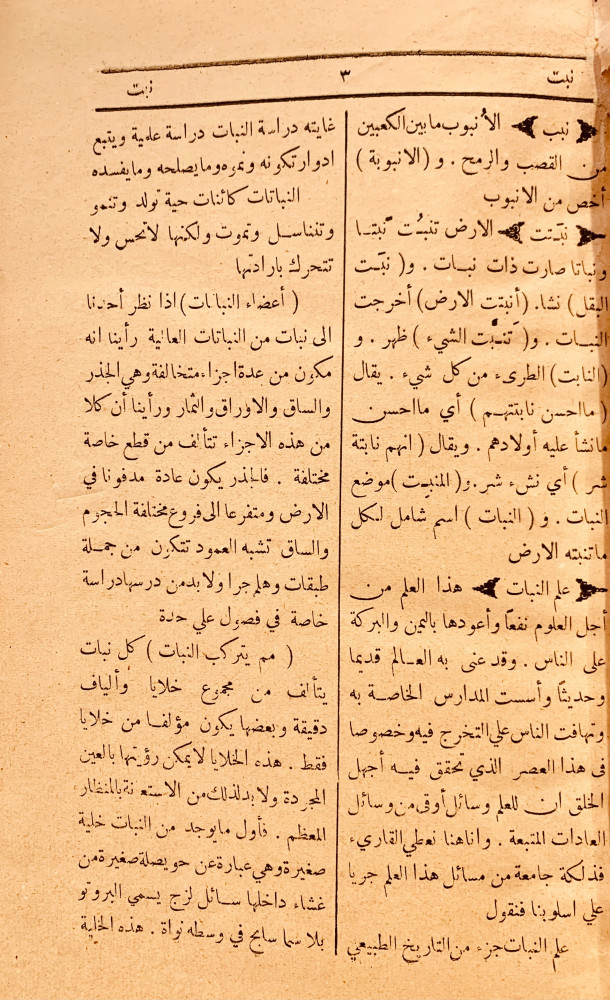 نبت ٣ نبت
نبب الأنبوب مابين الكعبين
من القصب والرمح . و ( الانبوبة )
أخص من الانبوب
نبَتت الارض تنبُت نبتا
ونباتا صارت ذات نبات . و( نبت
البقل) نشا. (أنبتت الارض) أخرجت
النبات . و( تنبَّت الشيء ) ظهر . و
(النابت) الطرىء من كل شيء . يقال
( مااحسن نابتتهم ) أي مااحسن
مانشأ عليه أولادهم . ويقال ( انهم نابتة
شر ) أي نشء شر . و( المنبِت )موضع
النبات . و ( النبات ) اسم شامل لكل
ماتنبته الارض
علم النبات هذا العلم من
أجل العلوم نفعاً وأعودها باليمن والبركة
على الناس . وقد عنى به العالم قديما
وحديثاً وأسست المدارس الخاصة به
وتهافت الناس علي التخرج فيه وخصوصا
فى هذا العصر الذي تحقق فيه أجهل
الخلق ان للعلم وسائل أوقى من وسائل
العادات المتبعة . واناهنا نعطي القاريء
فذلكة جامعة من مسائل هذا العلم جريا
علي اسلوبنا فنقول
علم النبات جزء من التاريخ الطبيعي
غايته دراسة النبات دراسة علمية ويتبع
ادوار تكونه ونموه ومايصلحه ومايفسده
النباتات كائنات حية تولد وتنمو
وتتناسل وتموت ولكنها لاتحس ولا
تتحرك بارادتها
( أعضاء النباتات) اذا نظر أحدنا
الى نبات من النباتات العالية رأينا انه
مكون من عدة اجزاء متخالفة وهي الجذر
والساق والاوراق والثمار ورأينا أن كلا
من هذه الاجزاء تتألف من قطع خاصة
مختلفة . فالجذر يكون عادة مدفونا في
الارض ومتفرعا الى فروع مختلفة الحجوم
والساق تشبه العمود تتكون من جملة
طبقات وهلم جرا ولابد من درسهادراسة
خاصة في فصول علي حدة
( مم يتركب النبات ) كل نبات
يتألف من مجموع خلايا وألياف
دقيقة وبعضها يكون مؤلفا من خلايا
فقط . هذه الخلايا لايمكن رؤيتها بالعين
المجردة ولابدلذلك من الاستعانة بالمنظار
المعظم . فأول مايوجد من النبات خلية
صغيرة وهي عبارة عن حويصلة صغيرة من
غشاء داخلها سائل لزج يسمي البروتو
بلاسما سابح في وسطه نواة . هذه الخلية